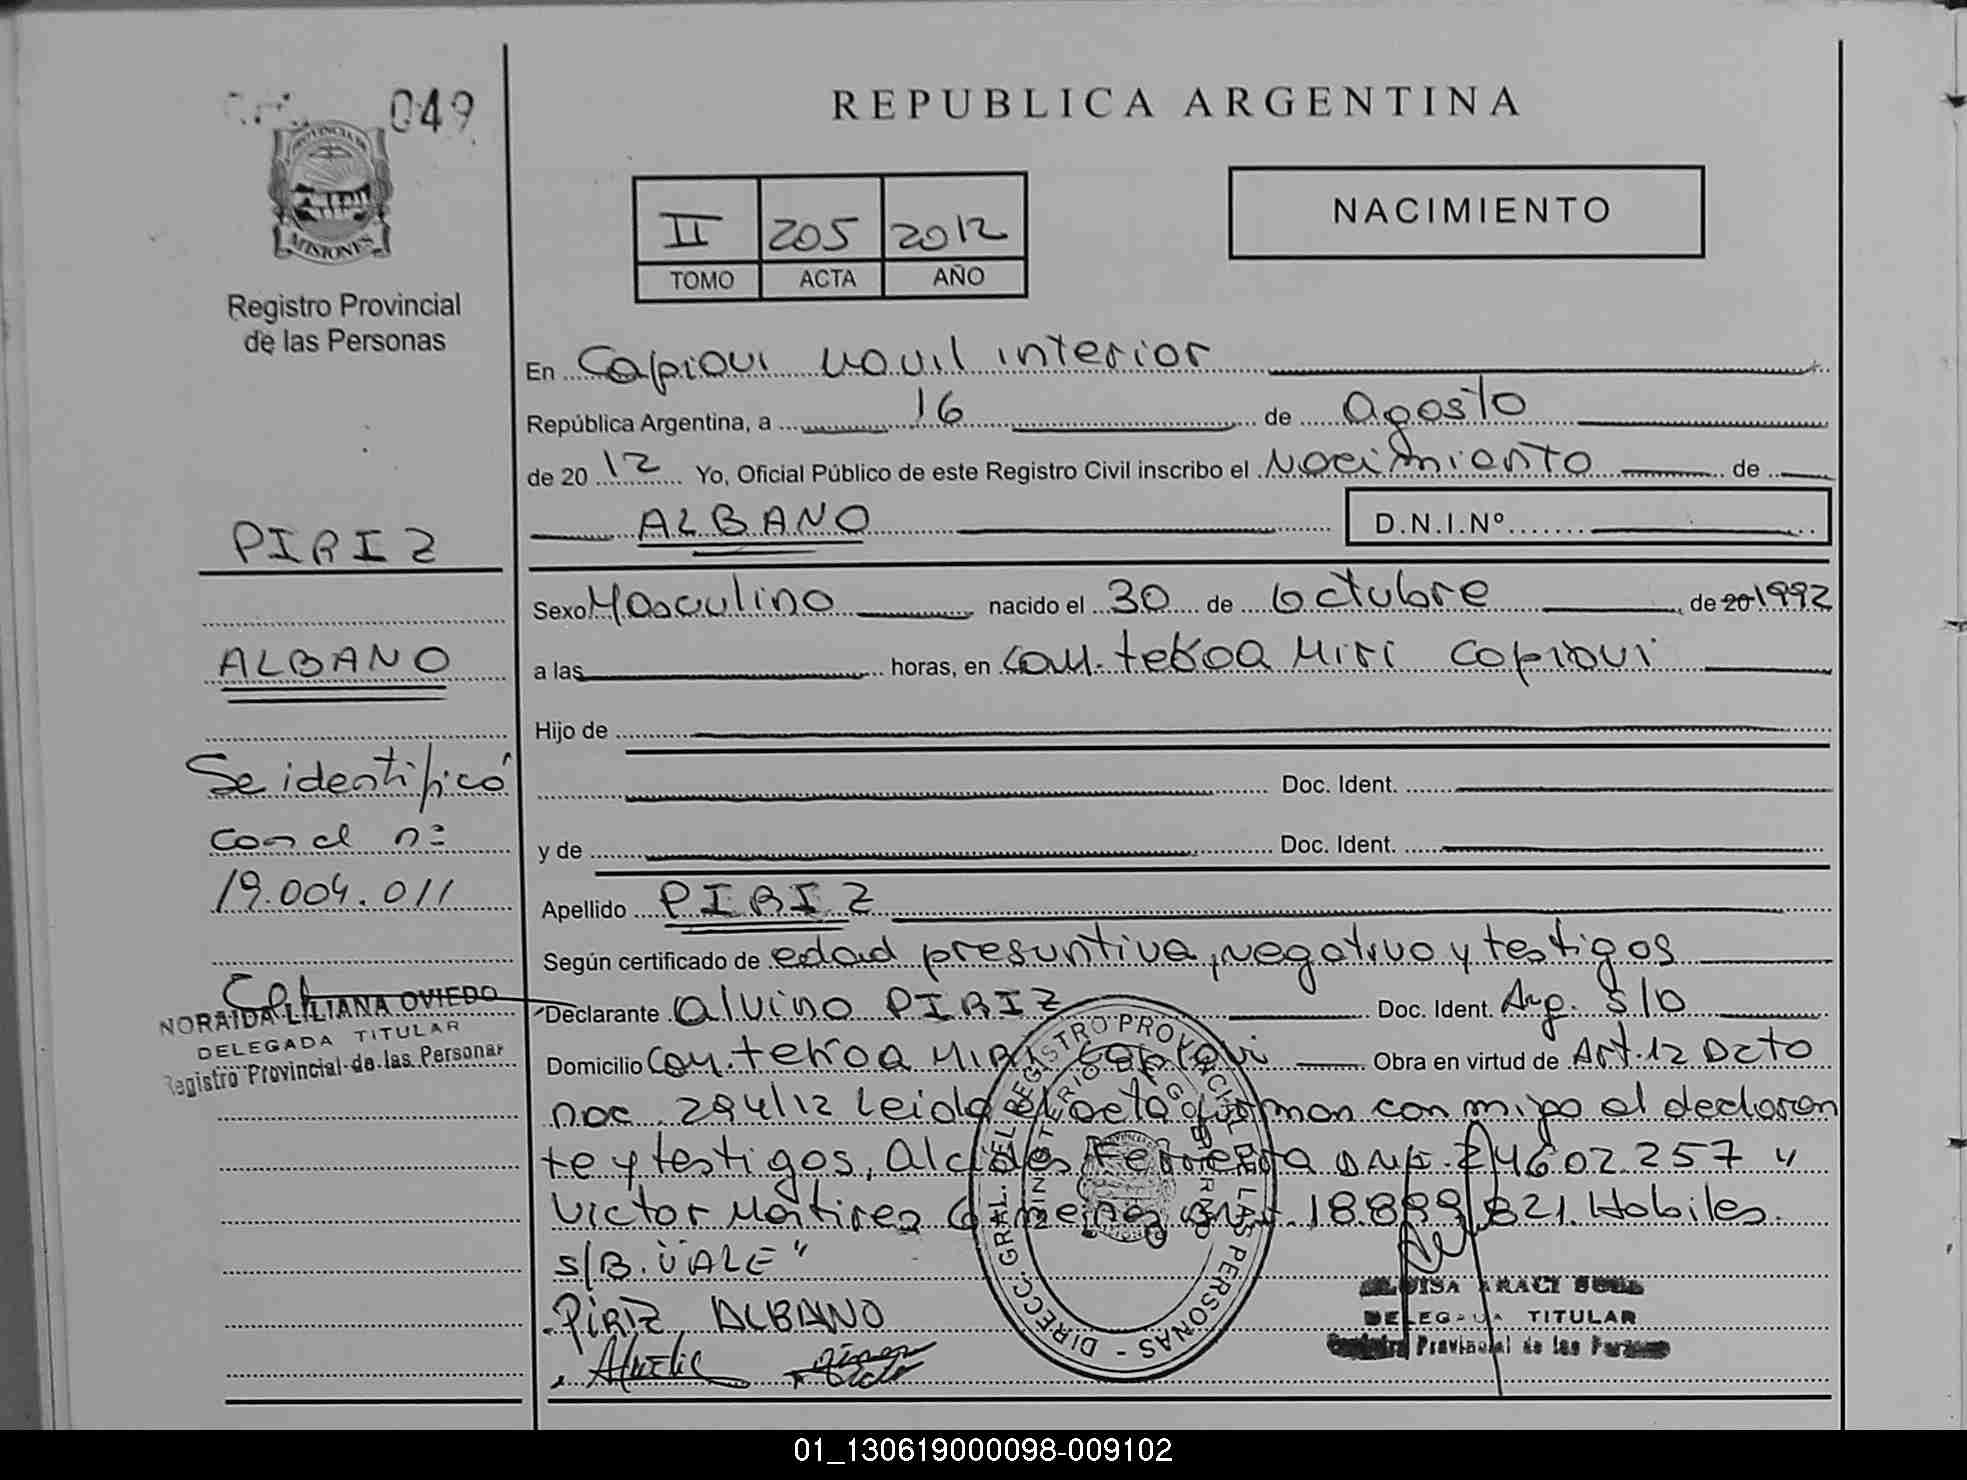 049
PROVINCIA DE
MISIONES
Registro Provincial
de las Personas
REPUBLICA ARGENTINA
II 205 2012
TOMO ACTA AÑO
NACIMIENTO
En Capiovi Movil interior
República Argentina, a 16 de Agosto
de 20 12 Yo, Oficial Público de este Registro Civil inscribo el Nacimiento de
ALBANO D.N.I.Nº
Sexo Masculino nacido el 30 de Octubre de 20 1992
a las horas, en Com. tekoa Miri Capiovi
Hijo de
Doc. Ident.
y de Doc. Ident.
Apellido PIRIZ
Según certificado de edad presuntiva, negativo y testigos
Declarante Alvino PIRIZ Doc. Ident. Arg. S/D
Domicilio Com. tekoa Miri Capiovi Obra en virtud de Art. 12 Dcto
nac 294/12 Leida el acta firman con migo el declaran
te y testigos, Alcides Ferreira DNI. 24602257 y
Victor Martires 18.899.821. Habiles.
S/B. VALE"
PIRIZ ALBANO
PIRIZ
ALBANO
Se identificó
con el nº
19.004.011
NORAIDA LILIANA OVIEDO
DELEGADA TITULAR
Registro Provincial de las Personas
DIRECC. GRAL. DEL REGISTRO PROVINCIAL DE LAS PERSONAS
MINISTERIO DE GOBIERNO
DELEGADA TITULAR
Provincial de las Personas
01_130619000098-009102